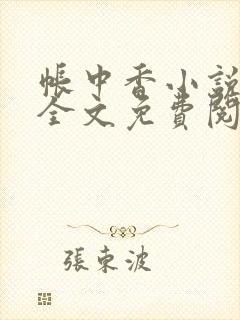 帳中香小說
全文免費閱
張東波